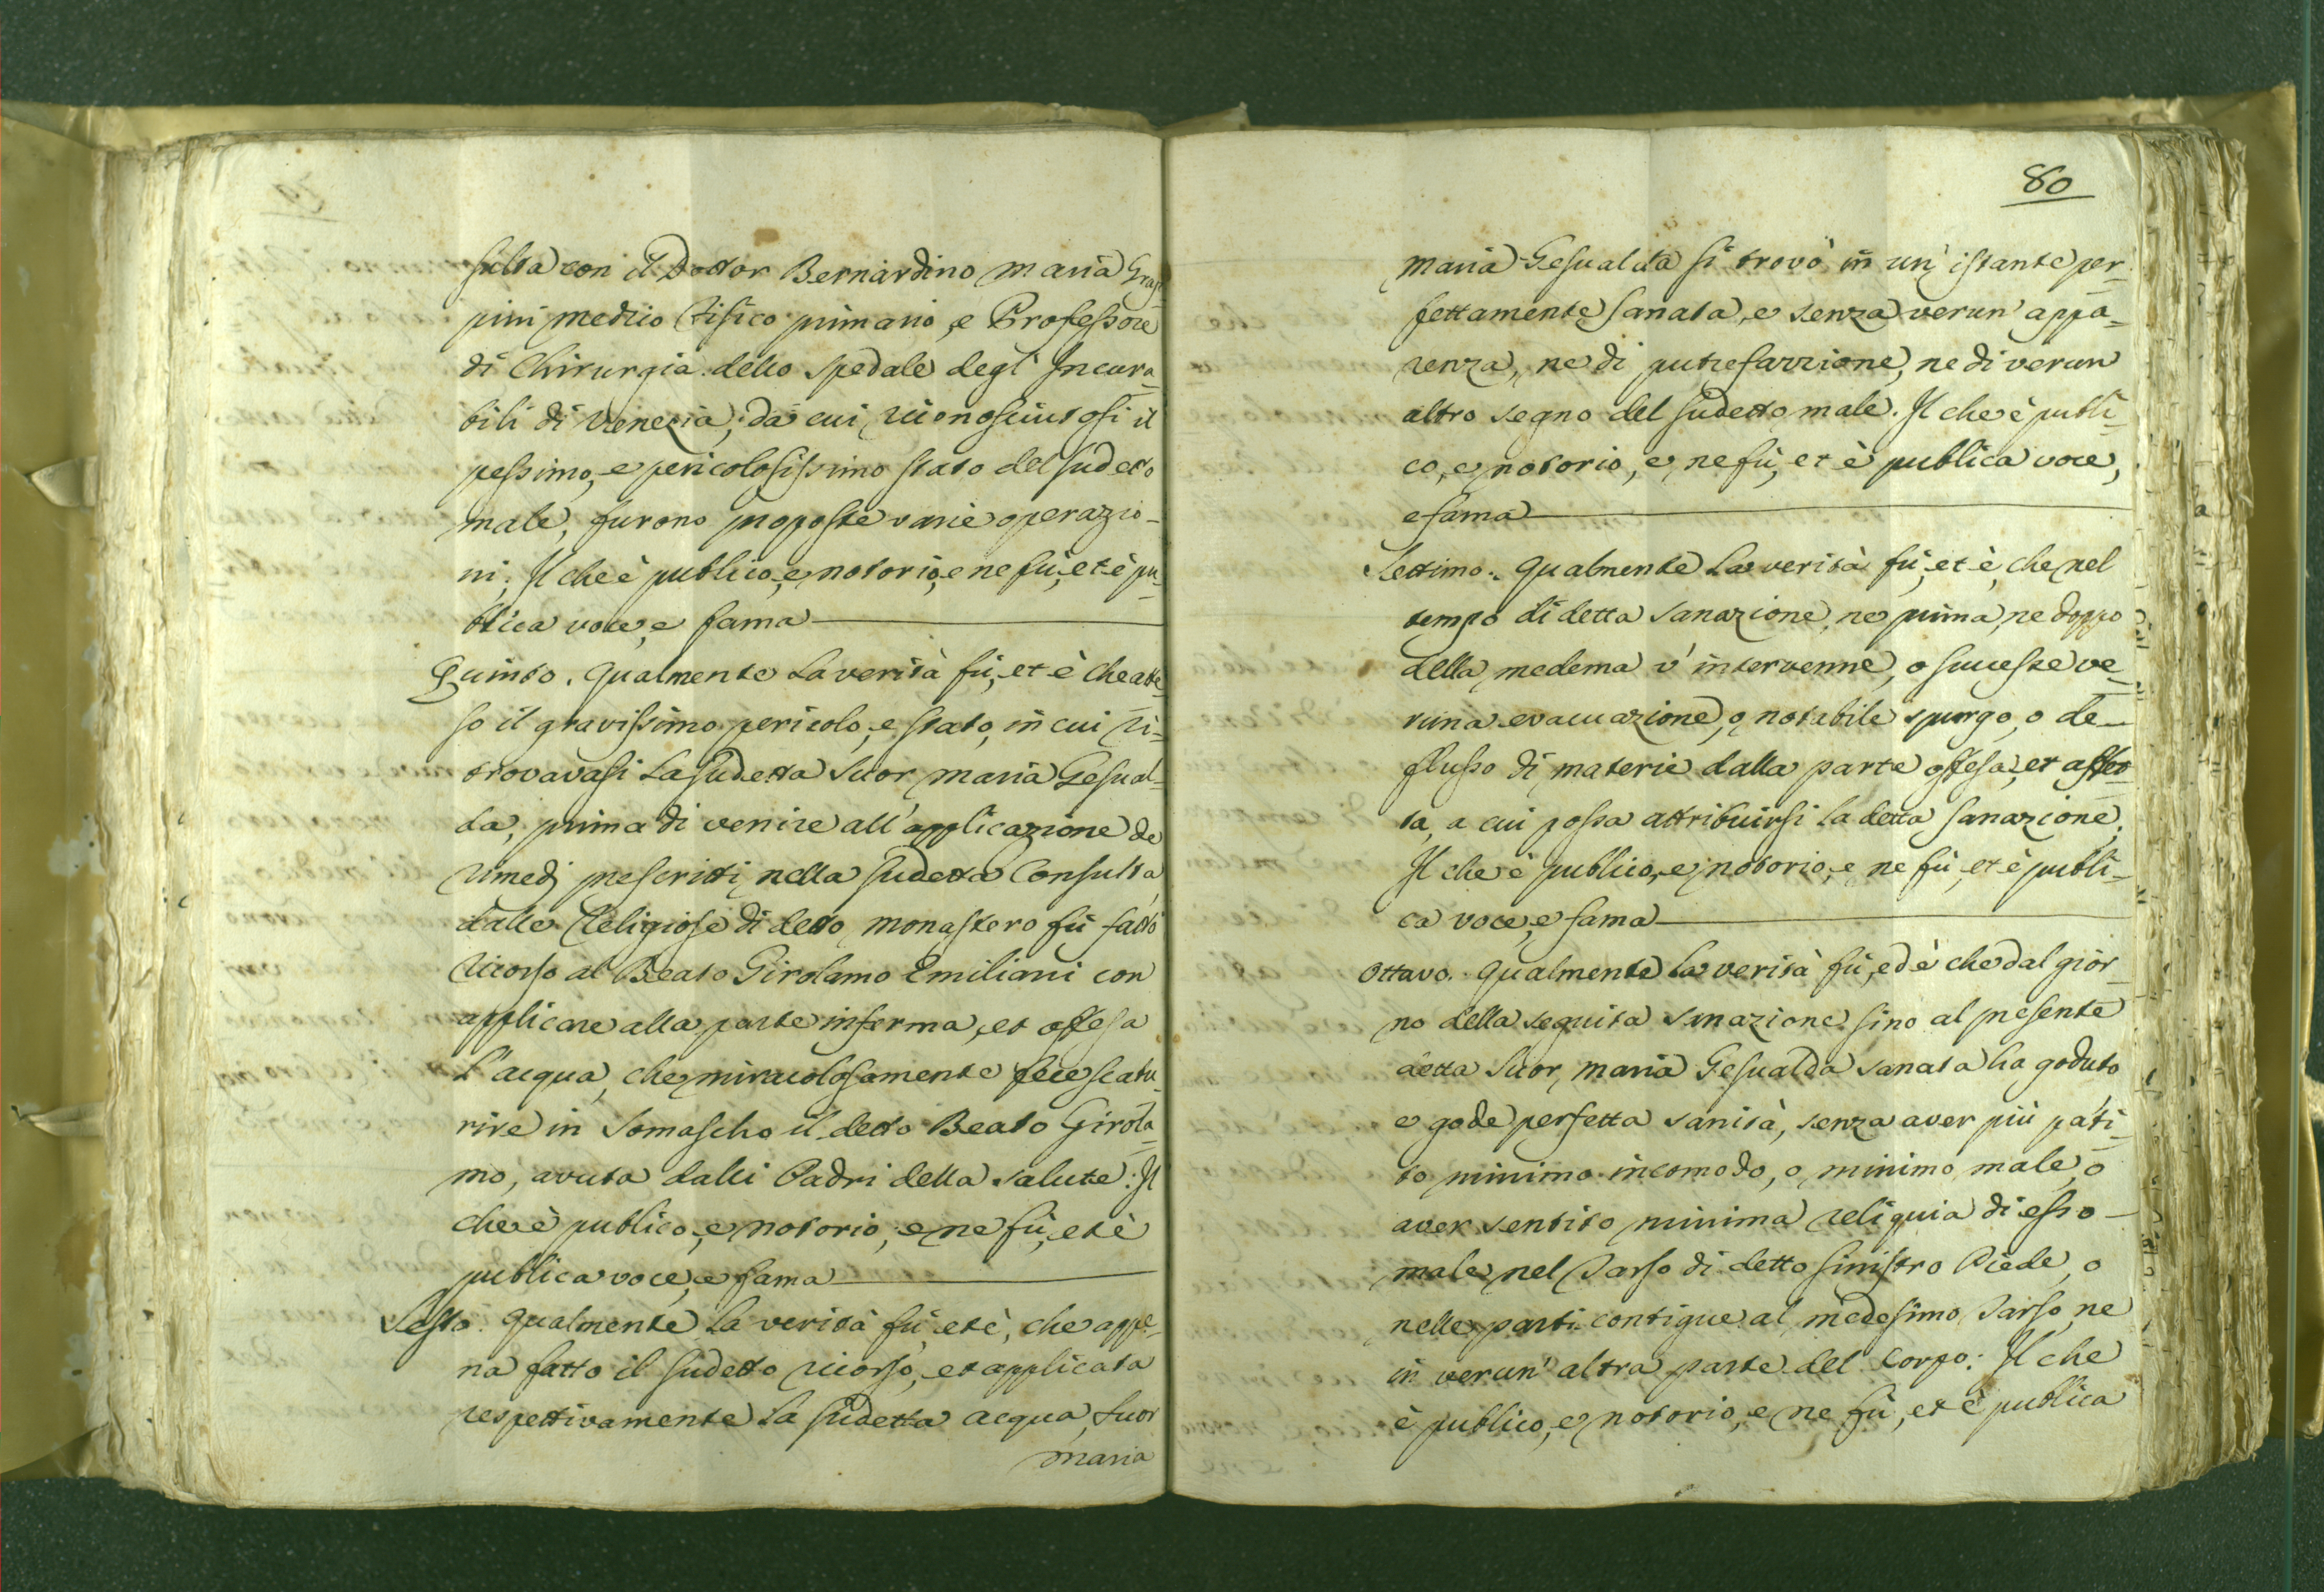 sulta con il Dottor Bernardino Maria
pini medico Fisico primario, e Professore
di Chirurgia dello Spedale degl' Incura-
bili di Venezia; da cui riconosciutosi il
pessimo, e pericolosissimo stato del sudetto
male, furono proposte varie operazio-
ni. Il che è publico, e notorio, e ne fù, et è pu-
blica voce, e fama
Quinto. Qualmente la verità fù, et è che atte-
so il gravissimo pericolo, e stato, in cui ri-
trovavasi la sudetta Suor Maria Gesual-
da, prima di venire all' applicazione de
rimedj prescritti nella sudetta Consulta,
dalle Religiose di detto Monastero fù fatto
ricorso al Beato Girolamo Emiliani con
applicare alla parte inferma, et offesa
l'acqua, che miracolosamente fece scatu-
rire in Somascho il detto Beato Girola-
mo, avuta dalli Padri della Salute. Il
che è publico, e notorio, e ne fù, et è
publica voce, e fama
Sesto. Qualmente la verità fù et è, che appe-
na fatto il sudetto ricorso, et applicata
respettivamente la sudetta acqua, Suor
Maria
80
Maria Gesualda si trovò in un' istante per-
fettamente sanata, e senza verun' appa-
renza, ne di putrefazzione, ne di verun
altro segno del sudetto male. Il che è publi-
co, e notorio, e ne fù, et è publica voce,
e fama
Settimo. Qualmente la verità fù, et è, che nel
tempo di detta sanazione, ne prima, ne doppo
della medema v' intervenne, o successe ve-
runa evacuazione, o notabile spurgo, o de-
flusso di materie dalla parte offesa, et affet-
ta, a cui possa attribuirsi la detta sanazione.
Il che è publico, e notorio, e ne fù, et è publi-
ca voce, e fama
Ottavo. Qualmente la verità fù, ed è che dal gior-
no della seguita sanazione sino al presente
detta Suor Maria Gesualda sanata ha goduto
e gode perfetta sanità, senza aver più pati-
to minimo incomodo, o minimo male, o
aver sentito minima reliquia di esso
male nel Tarso di detto sinistro Piede, o
nelle parti contigue al medesimo Tarso, ne
in verun' altra parte del Corpo. Il che
è publico, e notorio, e ne fù, et è publica